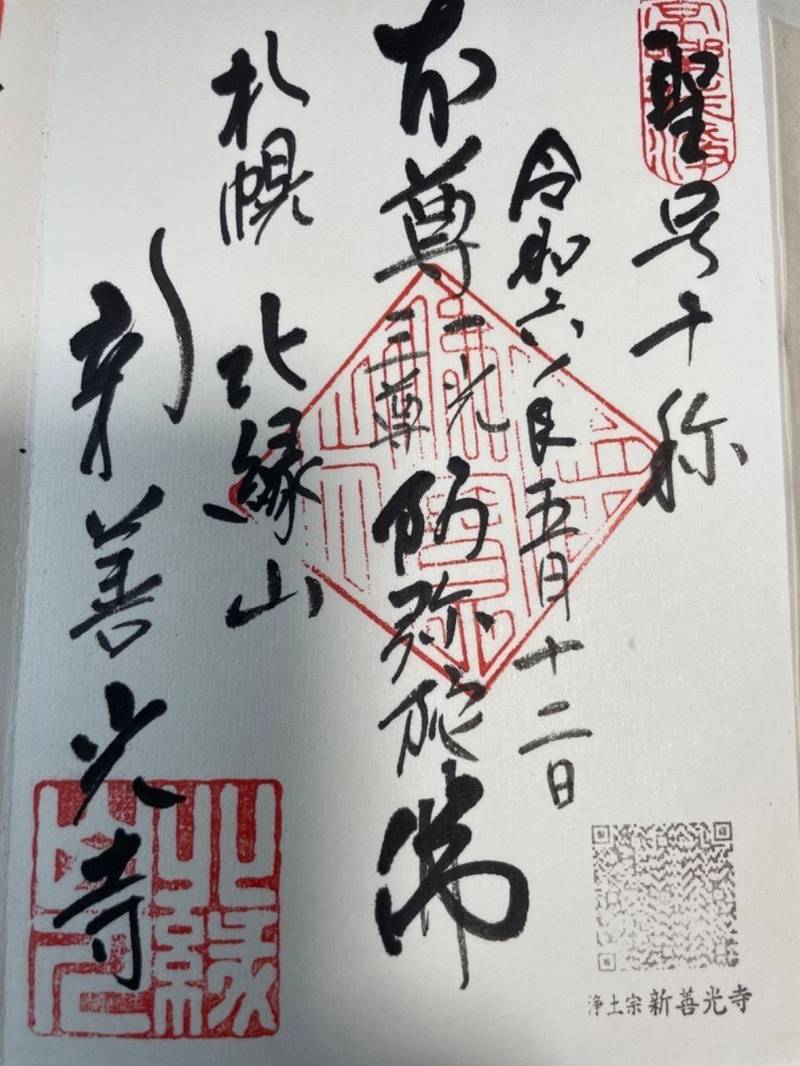 聖号十称
令和六年五月十二日
本尊 一光三尊 阿弥陀佛
札幌 北縁山
新善光寺
北縁
浄土宗 新善光寺